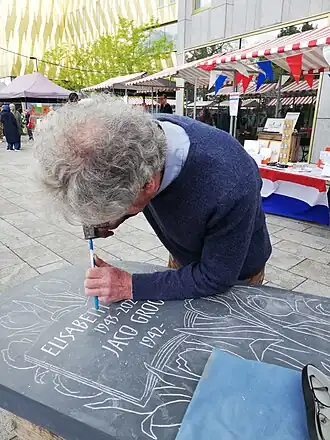 ELISABETH
1945-202
JACO GROO
1942-